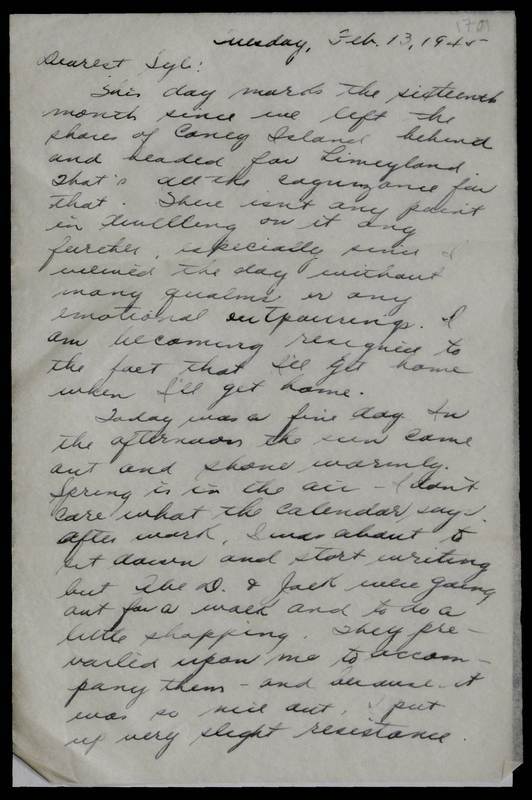 1701
Tuesday, Feb. 13, 1945
Dearest Syl:
This day marks the sixteenth
month since we left the
shores of Coney Island behind
and headed for Limeyland.
That's all the cognizance for
that. There isn't any point
in dwelling on it any
further, especially since I
viewed the day without
many qualms or any
emotional outpourings. I
am becoming resigned to
the fact that I'll get home
when I'll get home.
Today was a fine day. In
the afternoon the sun came
out and shone warmly.
Spring is in the air - I don't
care what the calendar says.
After work, I was about to
sit down and start writing
but the D. & Jack were going
out for a walk and to do a
little shopping. They pre-
vailed upon me to accom-
pany them - and because it
was so nice out, I put
up very slight resistance.